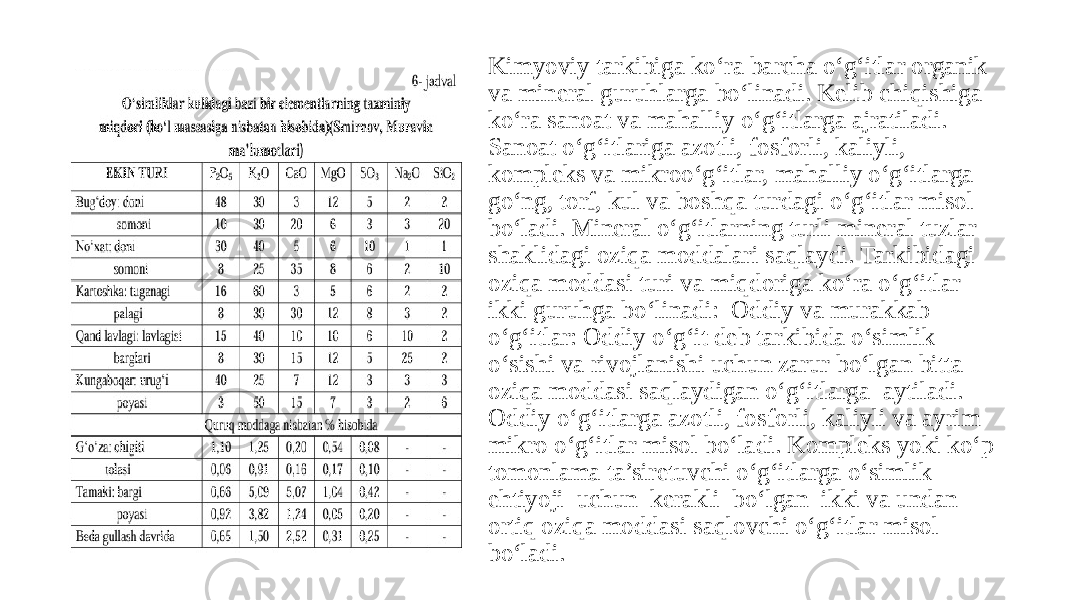 6- jadval
O‘simliklar kulidagi bazi bir elementlarning taxminiy
miqdori (ho‘l massasiga nisbatan hisobida)(Smirnov, Muravin
ma’lumotlari)
EKIN TURI P₂O₅ K₂O CaO MgO SO₃ Na₂O SiO₂
Bug‘doy: doni 48 30 3 12 5 2 2
somoni 10 30 20 6 3 3 20
No‘xat: doni 30 40 5 6 10 1 1
somoni 8 25 35 8 6 2 10
Kartoshka: tuganagi 16 60 3 5 6 2 2
palagi 8 30 30 12 8 3 2
Qand lavlagi: lavlagisi 15 40 10 10 6 10 2
barglari 8 30 15 12 5 25 2
Kungaboqar: urug‘i 40 25 7 12 3 3 3
poyasi 3 50 15 7 3 2 6
Quruq moddaga nisbatan % hisobida
G‘o‘za: chigiti 1,10 1,25 0,20 0,54 0,08 - -
tolasi 0,06 0,91 0,16 0,17 0,10 - -
Tamaki: bargi 0,66 5,09 5,07 1,04 0,42 - -
poyasi 0,92 3,82 1,24 0,05 0,20 - -
Beda gullash davrida 0,65 1,50 2,52 0,31 0,25 - -
Kimyoviy tarkibiga ko‘ra barcha o‘g‘itlar organik
va mineral guruhlarga bo‘linadi. Kelib chiqishiga
ko‘ra sanoat va mahalliy o‘g‘itlarga ajratiladi.
Sanoat o‘g‘itlariga azotli, fosforli, kaliyli,
kompleks va mikroo‘g‘itlar, mahalliy o‘g‘itlarga
go‘ng, torf, kul va boshqa turdagi o‘g‘itlar misol
bo‘ladi. Mineral o‘g‘itlarning turli mineral tuzlar
shaklidagi oziqa moddalari saqlaydi. Tarkibidagi
oziqa moddasi turi va miqdoriga ko‘ra o‘g‘itlar
ikki guruhga bo‘linadi: Oddiy va murakkab
o‘g‘itlar: Oddiy o‘g‘it deb tarkibida o‘simlik
o‘sishi va rivojlanishi uchun zarur bo‘lgan bitta
oziqa moddasi saqlaydigan o‘g‘itlarga aytiladi.
Oddiy o‘g‘itlarga azotli, fosforli, kaliyli va ayrim
mikro o‘g‘itlar misol bo‘ladi. Kompleks yoki ko‘p
tomonlama ta’siretuvchi o‘g‘itlarga o‘simlik
ehtiyoji uchun kerakli bo‘lgan ikki va undan
ortiq oziqa moddasi saqlovchi o‘g‘itlar misol
bo‘ladi.